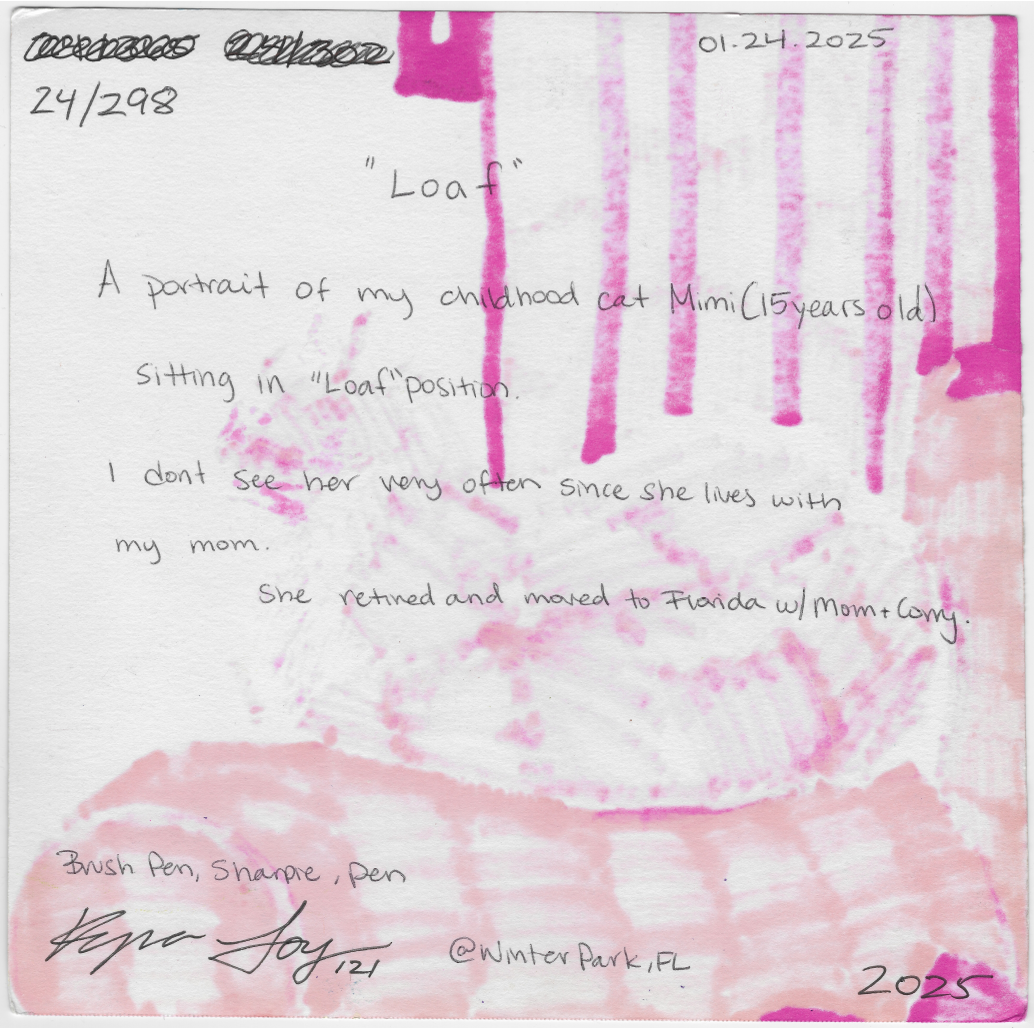 01.24.2025
24/298
"Loaf"
A portrait of my childhood cat Mimi (15 years old)
sitting in "Loaf" position.
I dont see her very often since she lives with
my mom.
She retired and moved to Florida w/ Mom + Corry.
Brush Pen, Sharpie, pen
Joy 121
@Winter Park, FL
2025